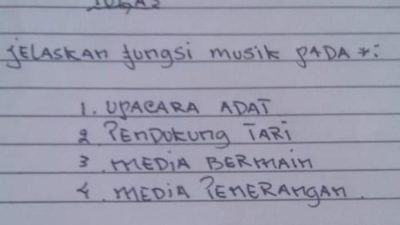 JELASKAN fungsi musik PADA *:
1. UPACARA ADAT
2. PENDUKUNG TARI
3. MEDIA BERMAIN
4. MEDIA PENERANGAN.